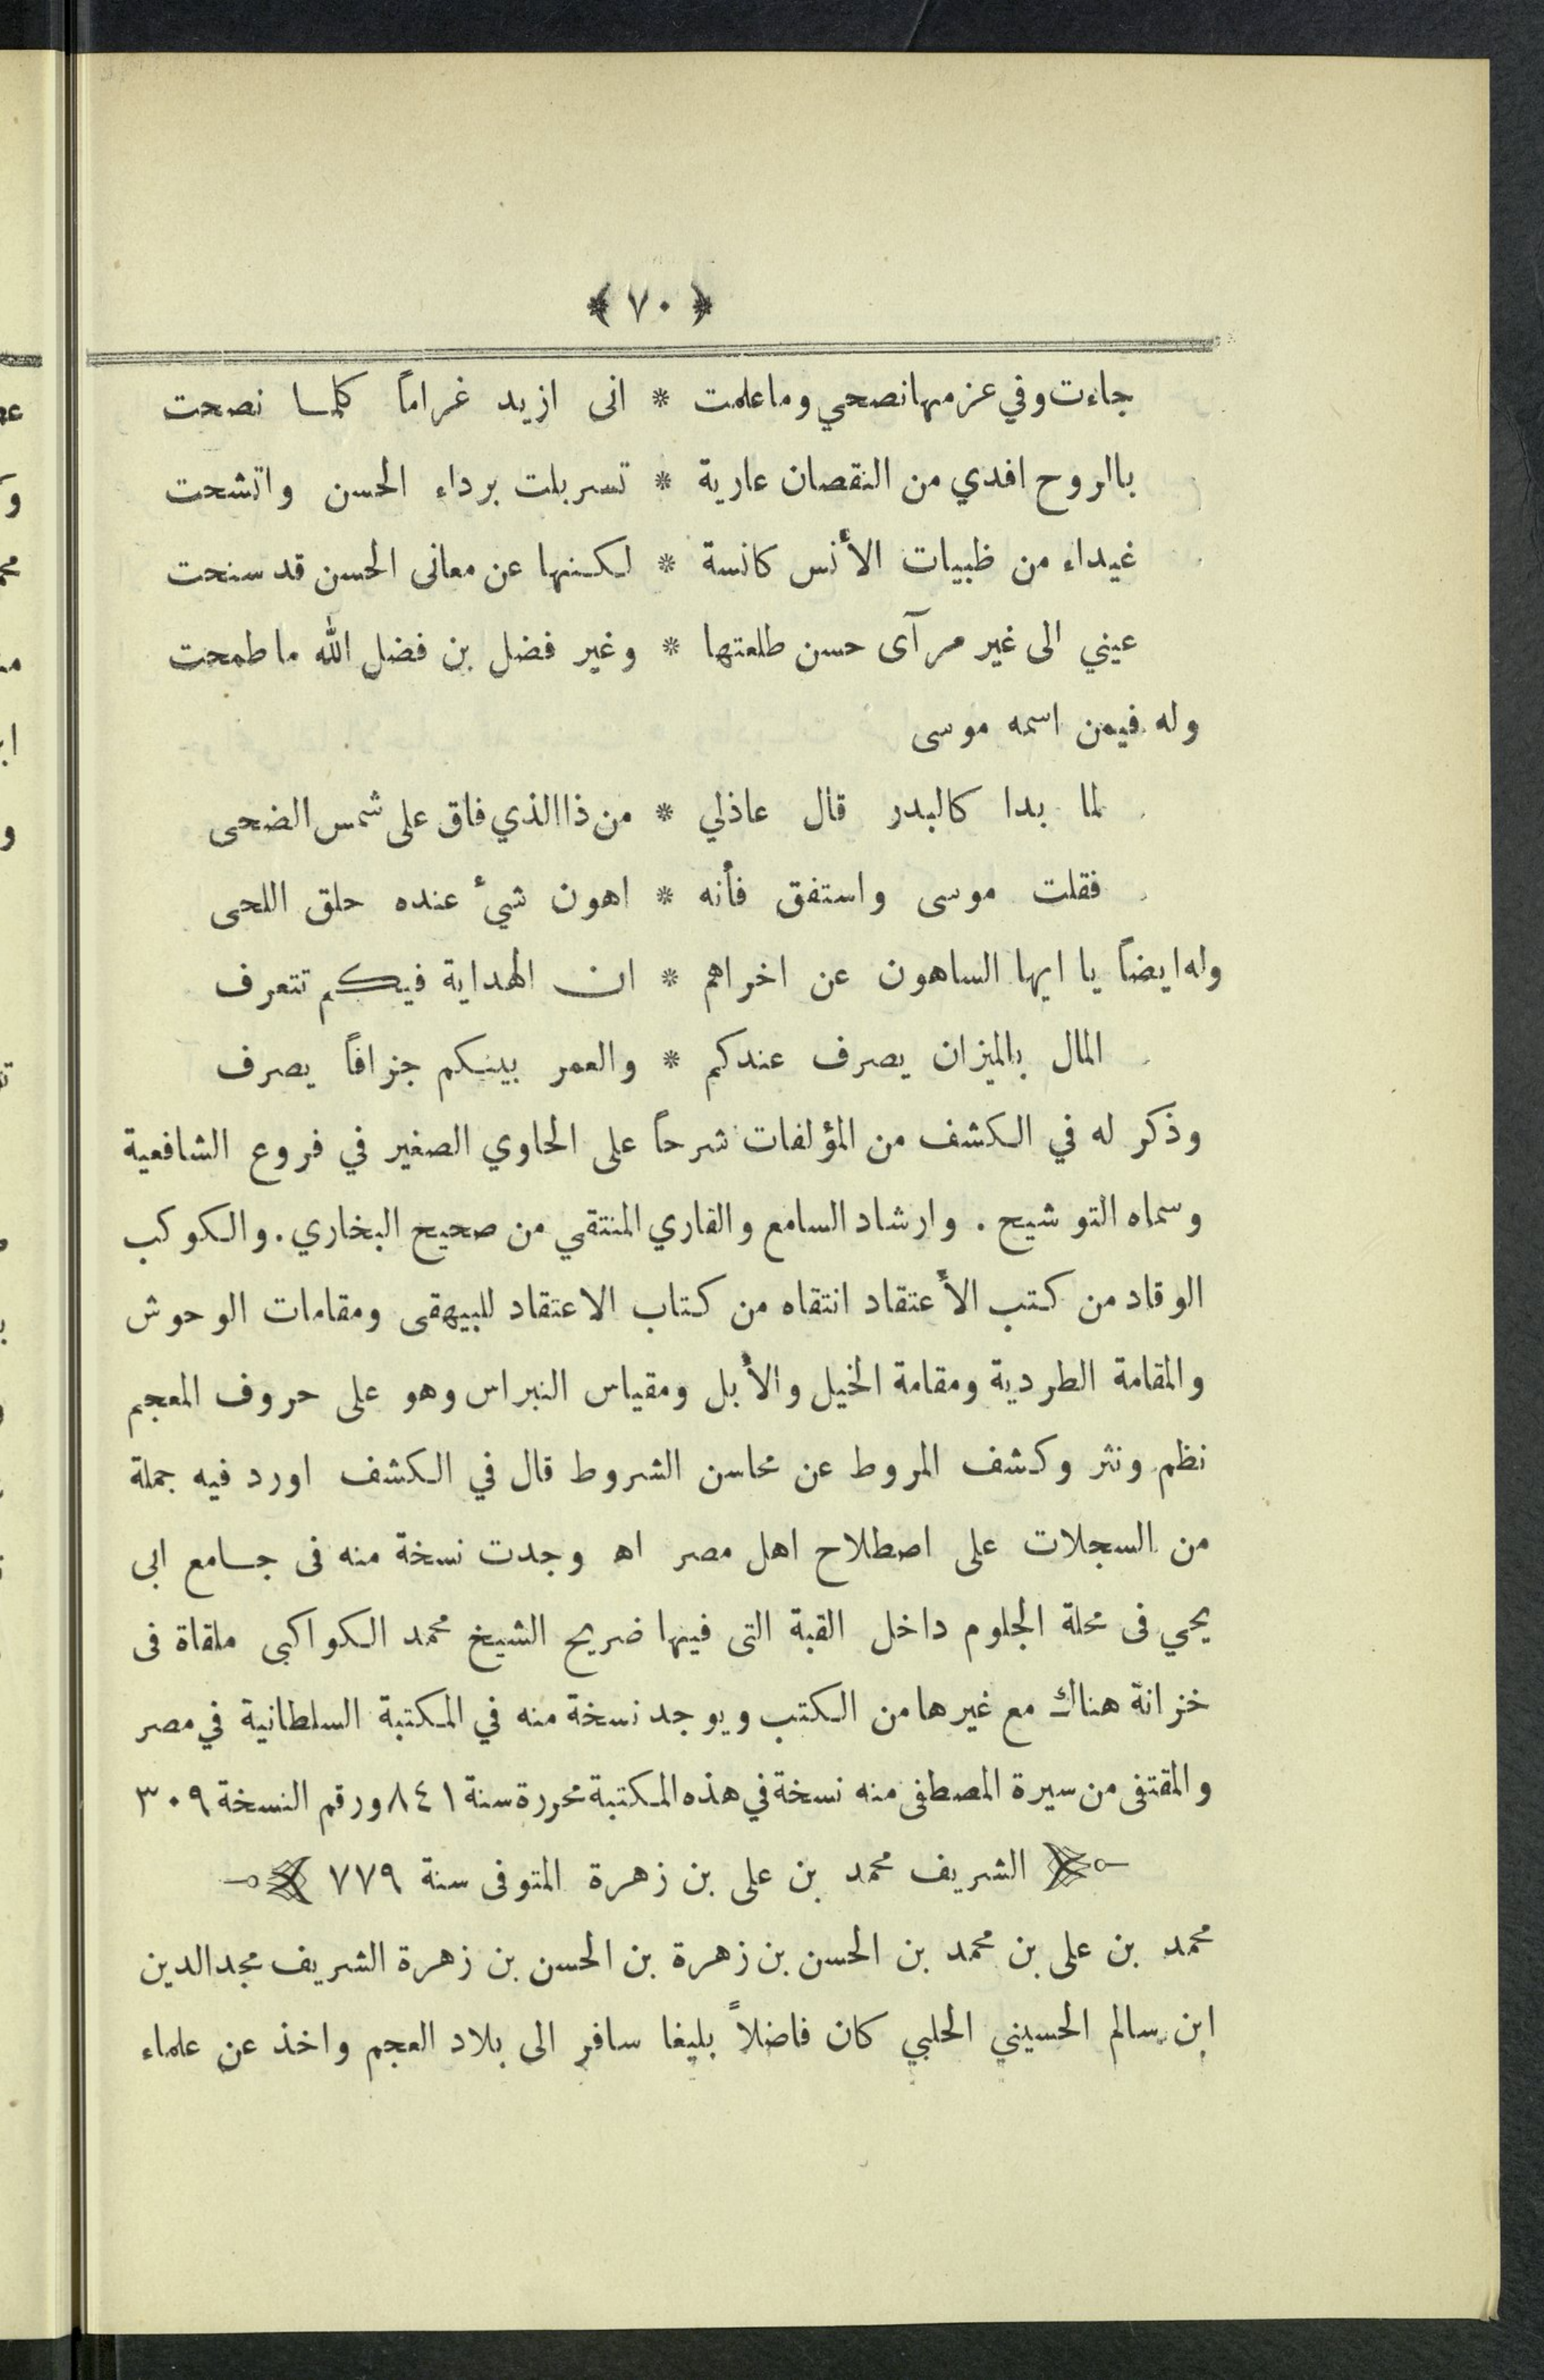 ﴿ ٧٠ ﴾
جاءت وفي عزمها نصحي وما علمت * انى ازيد غراماً كلما نصحت
بالروح افدي من النقصان عارية * تسربلت برداء الحسن واتشحت
غيداء من ظبيات الأنس كانسة * لكنها عن معانى الحسن قد سنحت
عيني الى غير مرآى حسن طلعتها * وغير فضل بن فضل الله ما طمحت
وله فيمن اسمه موسى
لما بدا كالبدر قال عاذلي * من ذا الذي فاق على شمس الضحى
فقلت موسى واستفق فأنه * اهون شئ عنده حلق اللحى
وله ايضاً يا ايها الساهون عن اخراهم * ان الهداية فيكم تتعرف
المال بالميزان يصرف عندكم * والعمر بينكم جزافاً يصرف
وذكر له في الكشف من المؤلفات شرحاً على الحاوي الصغير في فروع الشافعية
وسماه التوشيح . وارشاد السامع والقاري المنتقي من صحيح البخاري . والكوكب
الوقاد من كتب الأعتقاد انتقاه من كتاب الاعتقاد للبيهقى ومقامات الوحوش
والمقامة الطردية ومقامة الخيل والأبل ومقياس النبراس وهو على حروف المعجم
نظم ونثر وكشف المروط عن محاسن الشروط قال في الكشف اورد فيه جملة
من السجلات على اصطلاح اهل مصر اه وجدت نسخة منه فى جامع ابى
يحي فى محلة الجلوم داخل القبة التى فيها ضريح الشيخ محمد الكواكبى ملقاة فى
خزانة هناك مع غيرها من الكتب ويوجد نسخة منه في المكتبة السلطانية في مصر
والمقتفى من سيرة المصطفى منه نسخة في هذه المكتبة محررة سنة ٨٤١ ورقم النسخة ٣٠٩
الشريف محمد بن على بن زهرة المتوفى سنة ٧٧٩
محمد بن على بن محمد بن الحسن بن زهرة بن الحسن بن زهرة الشريف مجد الدين
ابن سالم الحسيني الحلبي كان فاضلاً بليغا سافر الى بلاد العجم واخذ عن علماء